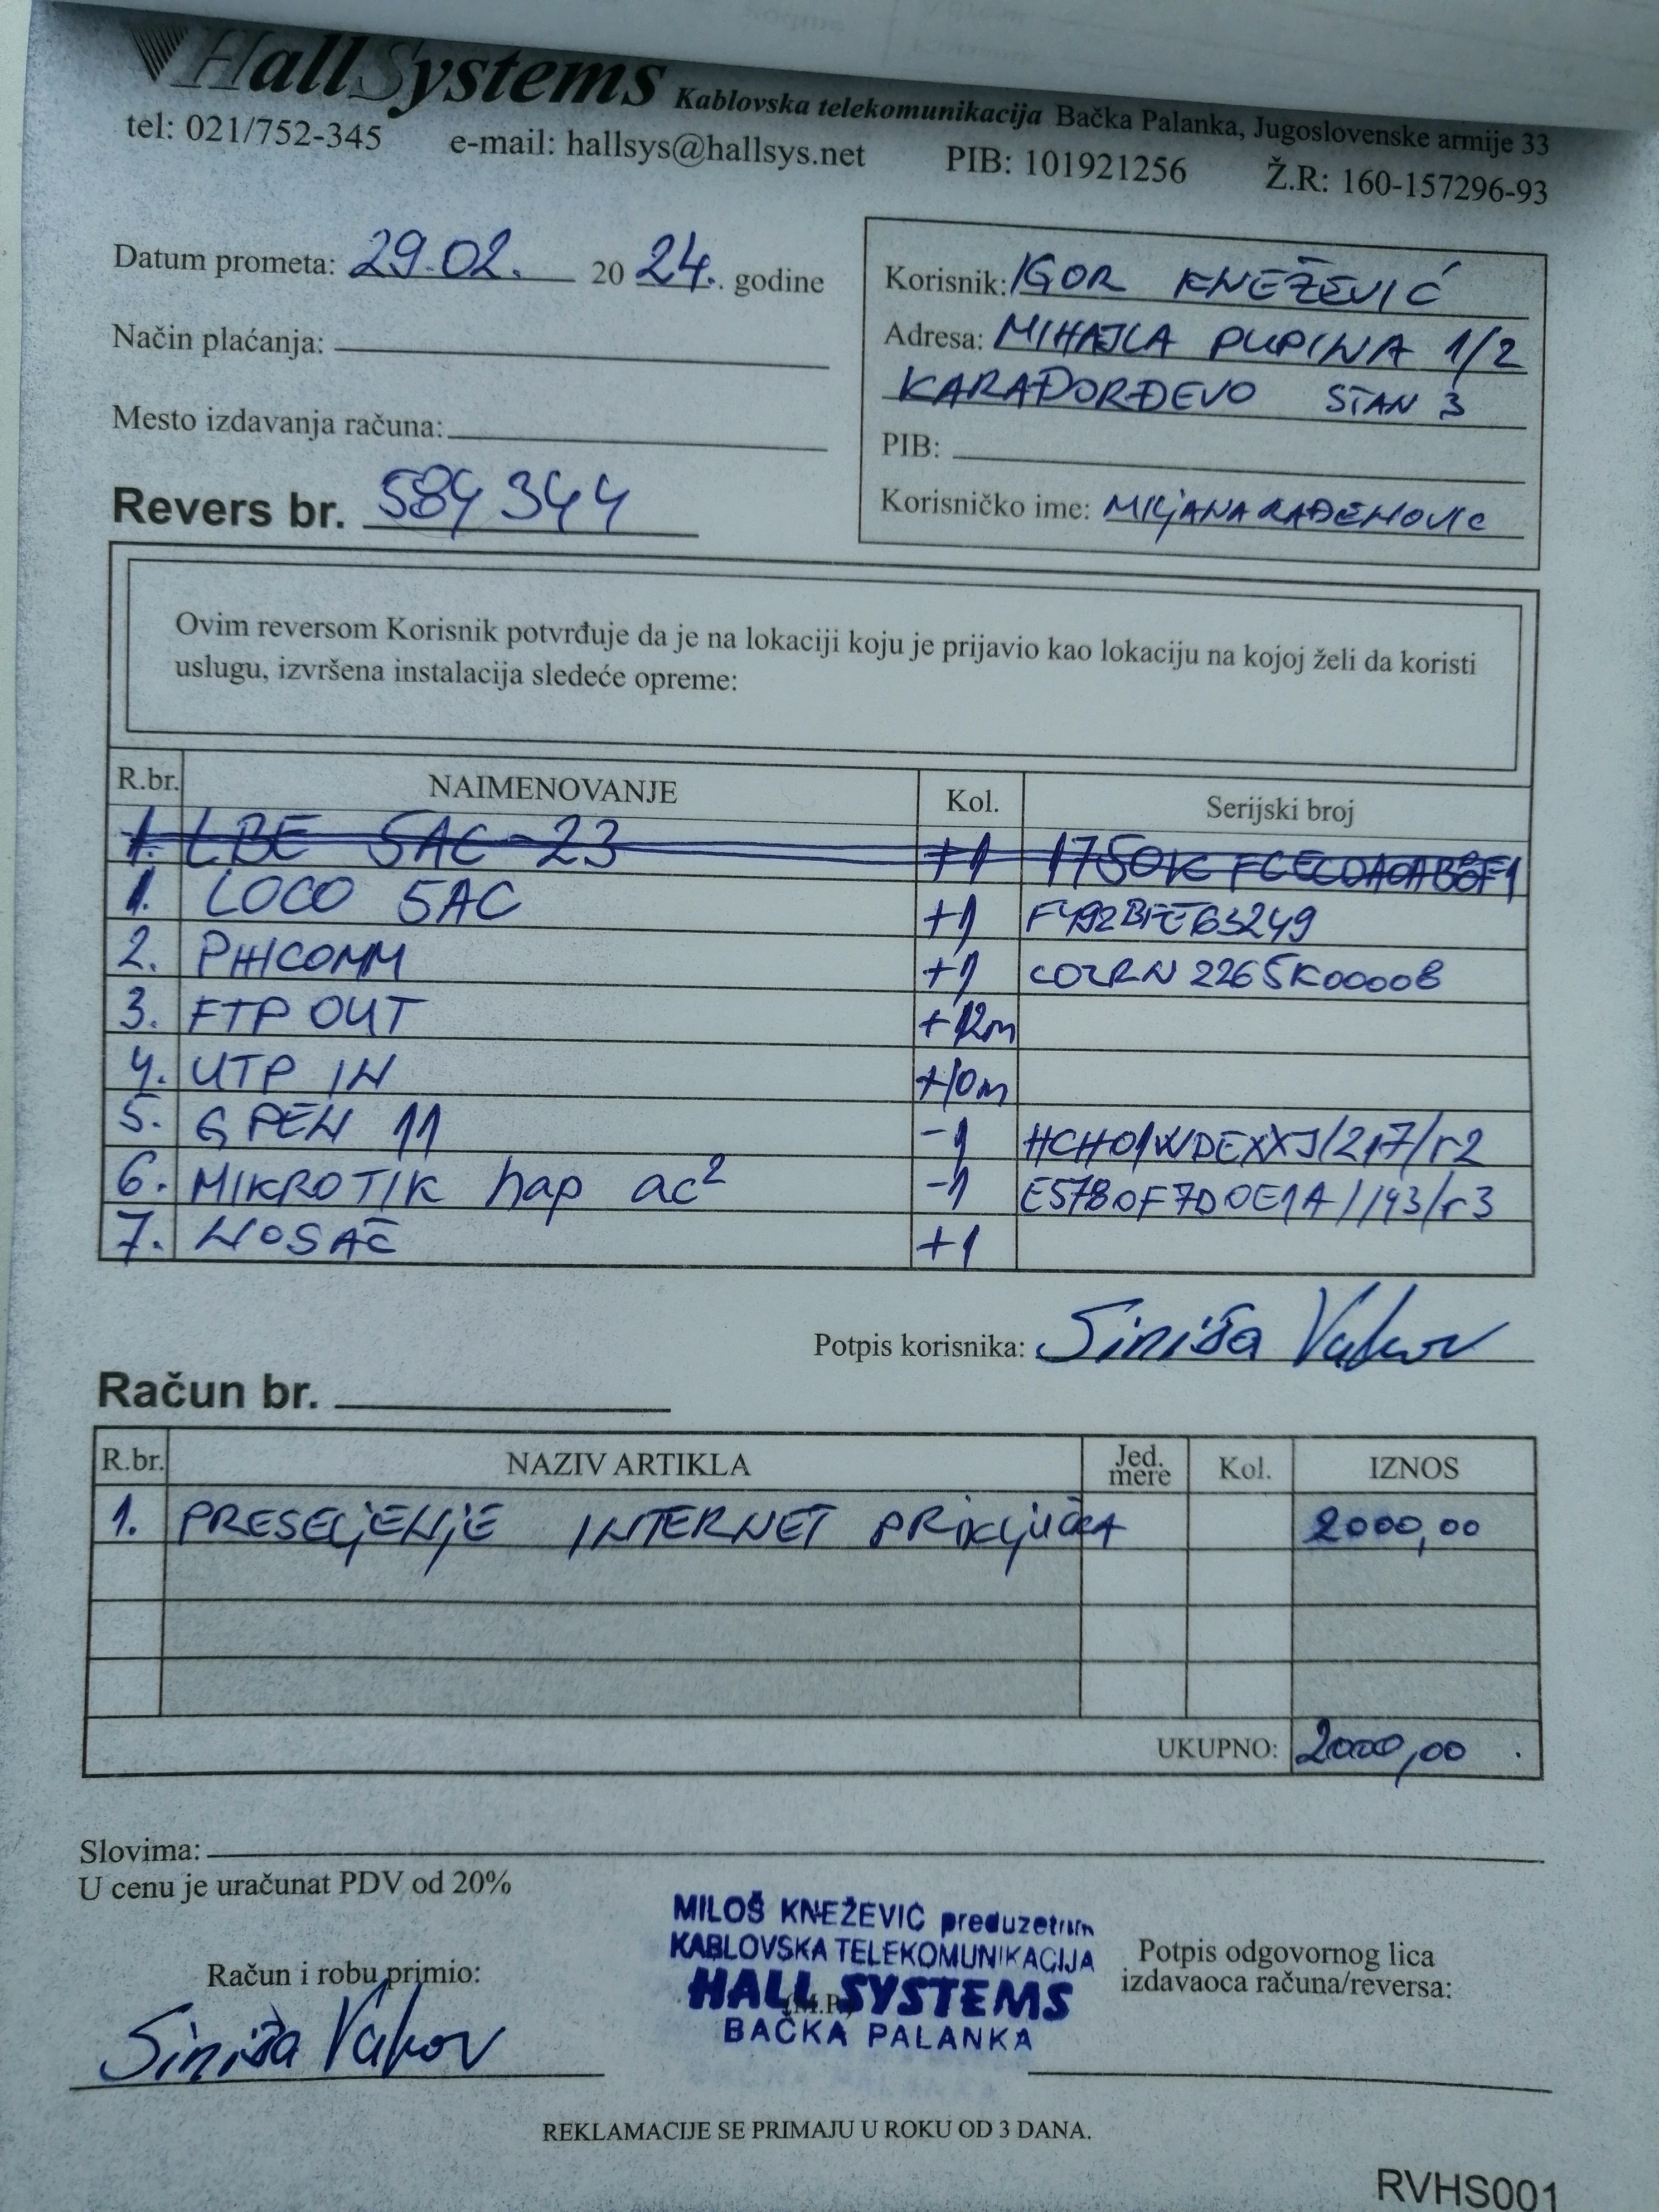 HallSystems Kablovska telekomunikacija Bačka Palanka, Jugoslovenske armije 33
tel: 021/752-345 e-mail: hallsys@hallsys.net PIB: 101921256 Ž.R: 160-157296-93
Datum prometa: 29.02. 2024. godine
Način plaćanja:
Mesto izdavanja računa:
Revers br. 584344
Korisnik: IGOR KNEŽEVIĆ
Adresa: MIHAJLA PUPINA 1/2
KARAĐORĐEVO STAN 3
PIB:
Korisničko ime: MILJANARAĐENOVIC
Ovim reversom Korisnik potvrđuje da je na lokaciji koju je prijavio kao lokaciju na kojoj želi da koristi
uslugu, izvršena instalacija sledeće opreme:
R.br. NAIMENOVANJE Kol. Serijski broj
1. LBE 5AC-23 +1
1. LOCO 5AC +1 F492BFE63249
2. PHICOMM +1 COZRN2265K00008
3. FTP OUT +12m
4. UTP IN +10m
5. GPEN 11 -1 HCH01WDEXXJ/217/r2
6. MIKROTIK hap ac² -1 E5780F7D0E1A/143/r3
7. NOSAČ +1
Potpis korisnika: Siniša Vakov
Račun br.
R.br. NAZIV ARTIKLA Jed. mere Kol. IZNOS
1. PRESELJENJE INTERNET PRIKLJUČKA 2000,00
UKUPNO: 2000,00
Slovima:
U cenu je uračunat PDV od 20%
Račun i robu primio:
Siniša Vakov
MILOŠ KNEŽEVIĆ preduzetnik
KABLOVSKA TELEKOMUNIKACIJA
HALL SYSTEMS
(M.P.)
BAČKA PALANKA
Potpis odgovornog lica
izdavaoca računa/reversa:
REKLAMACIJE SE PRIMAJU U ROKU OD 3 DANA.
RVHS001